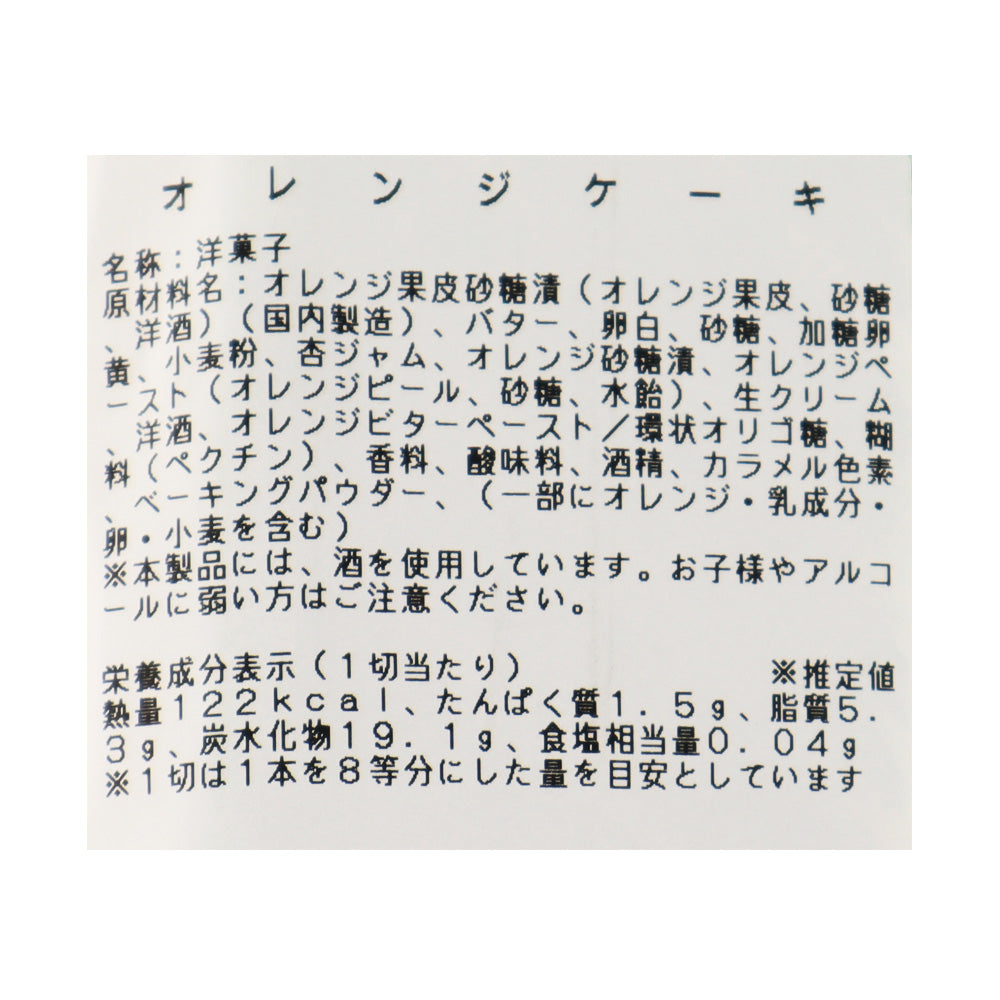 オレンジケーキ
名称：洋菓子
原材料名：オレンジ果皮砂糖漬（オレンジ果皮、砂糖
、洋酒）（国内製造）、バター、卵白、砂糖、加糖卵
黄、小麦粉、杏ジャム、オレンジ砂糖漬、オレンジペ
ースト（オレンジピール、砂糖、水飴）、生クリーム
、洋酒、オレンジビターペースト／環状オリゴ糖、糊
料（ペクチン）、香料、酸味料、酒精、カラメル色素
、ベーキングパウダー、（一部にオレンジ・乳成分・
卵・小麦を含む）
※本製品には、酒を使用しています。お子様やアルコ
ールに弱い方はご注意ください。
栄養成分表示（１切当たり） ※推定値
熱量１２２ｋｃａｌ、たんぱく質１．５ｇ、脂質５．
３ｇ、炭水化物１９．１ｇ、食塩相当量０．０４ｇ
※１切は１本を８等分にした量を目安としています